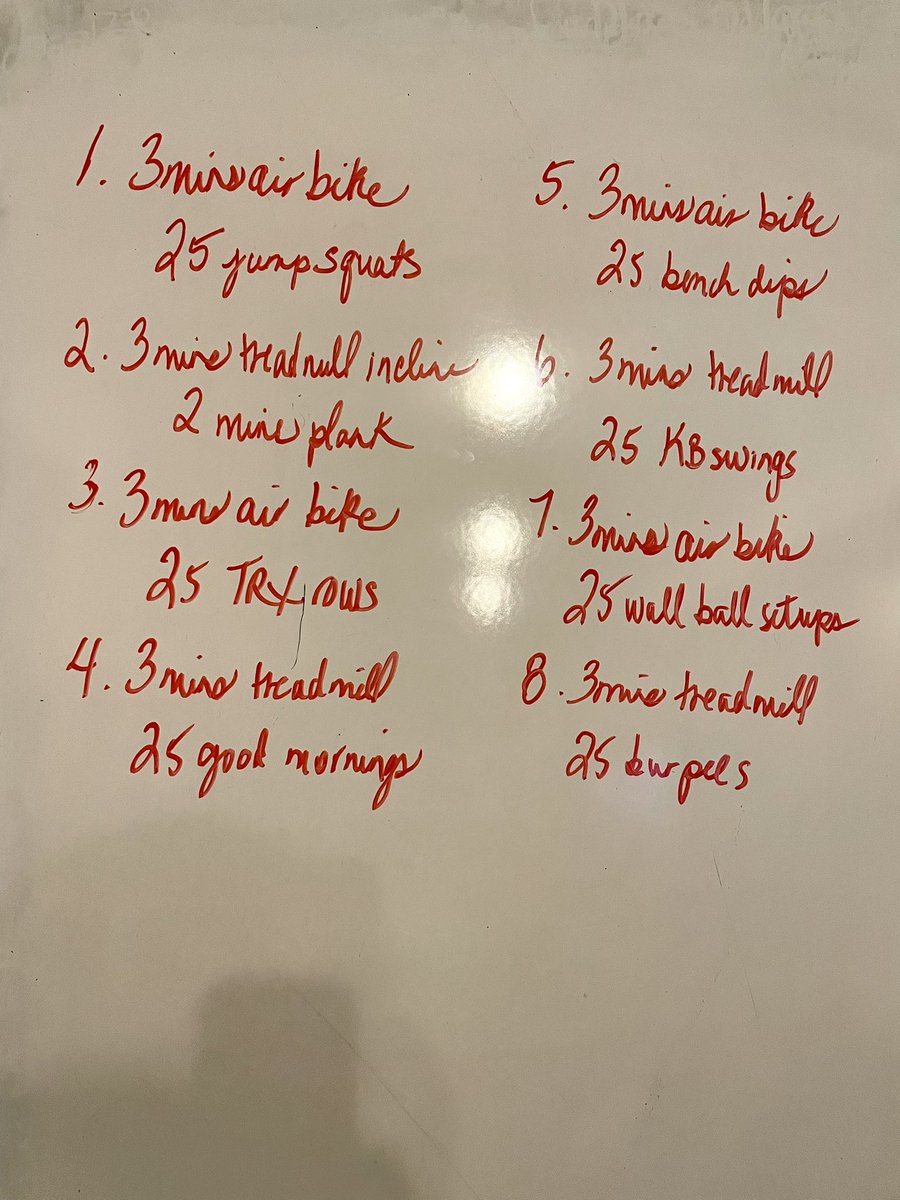 1. 3 mins air bike
25 jump squats
2. 3 mins treadmill incline
2 mins plank
3. 3 mins air bike
25 TRX rows
4. 3 mins treadmill
25 good mornings
5. 3 mins air bike
25 bench dips
6. 3 mins treadmill
25 KB swings
7. 3 mins air bike
25 wall ball situps
8. 3 mins treadmill
25 burpees